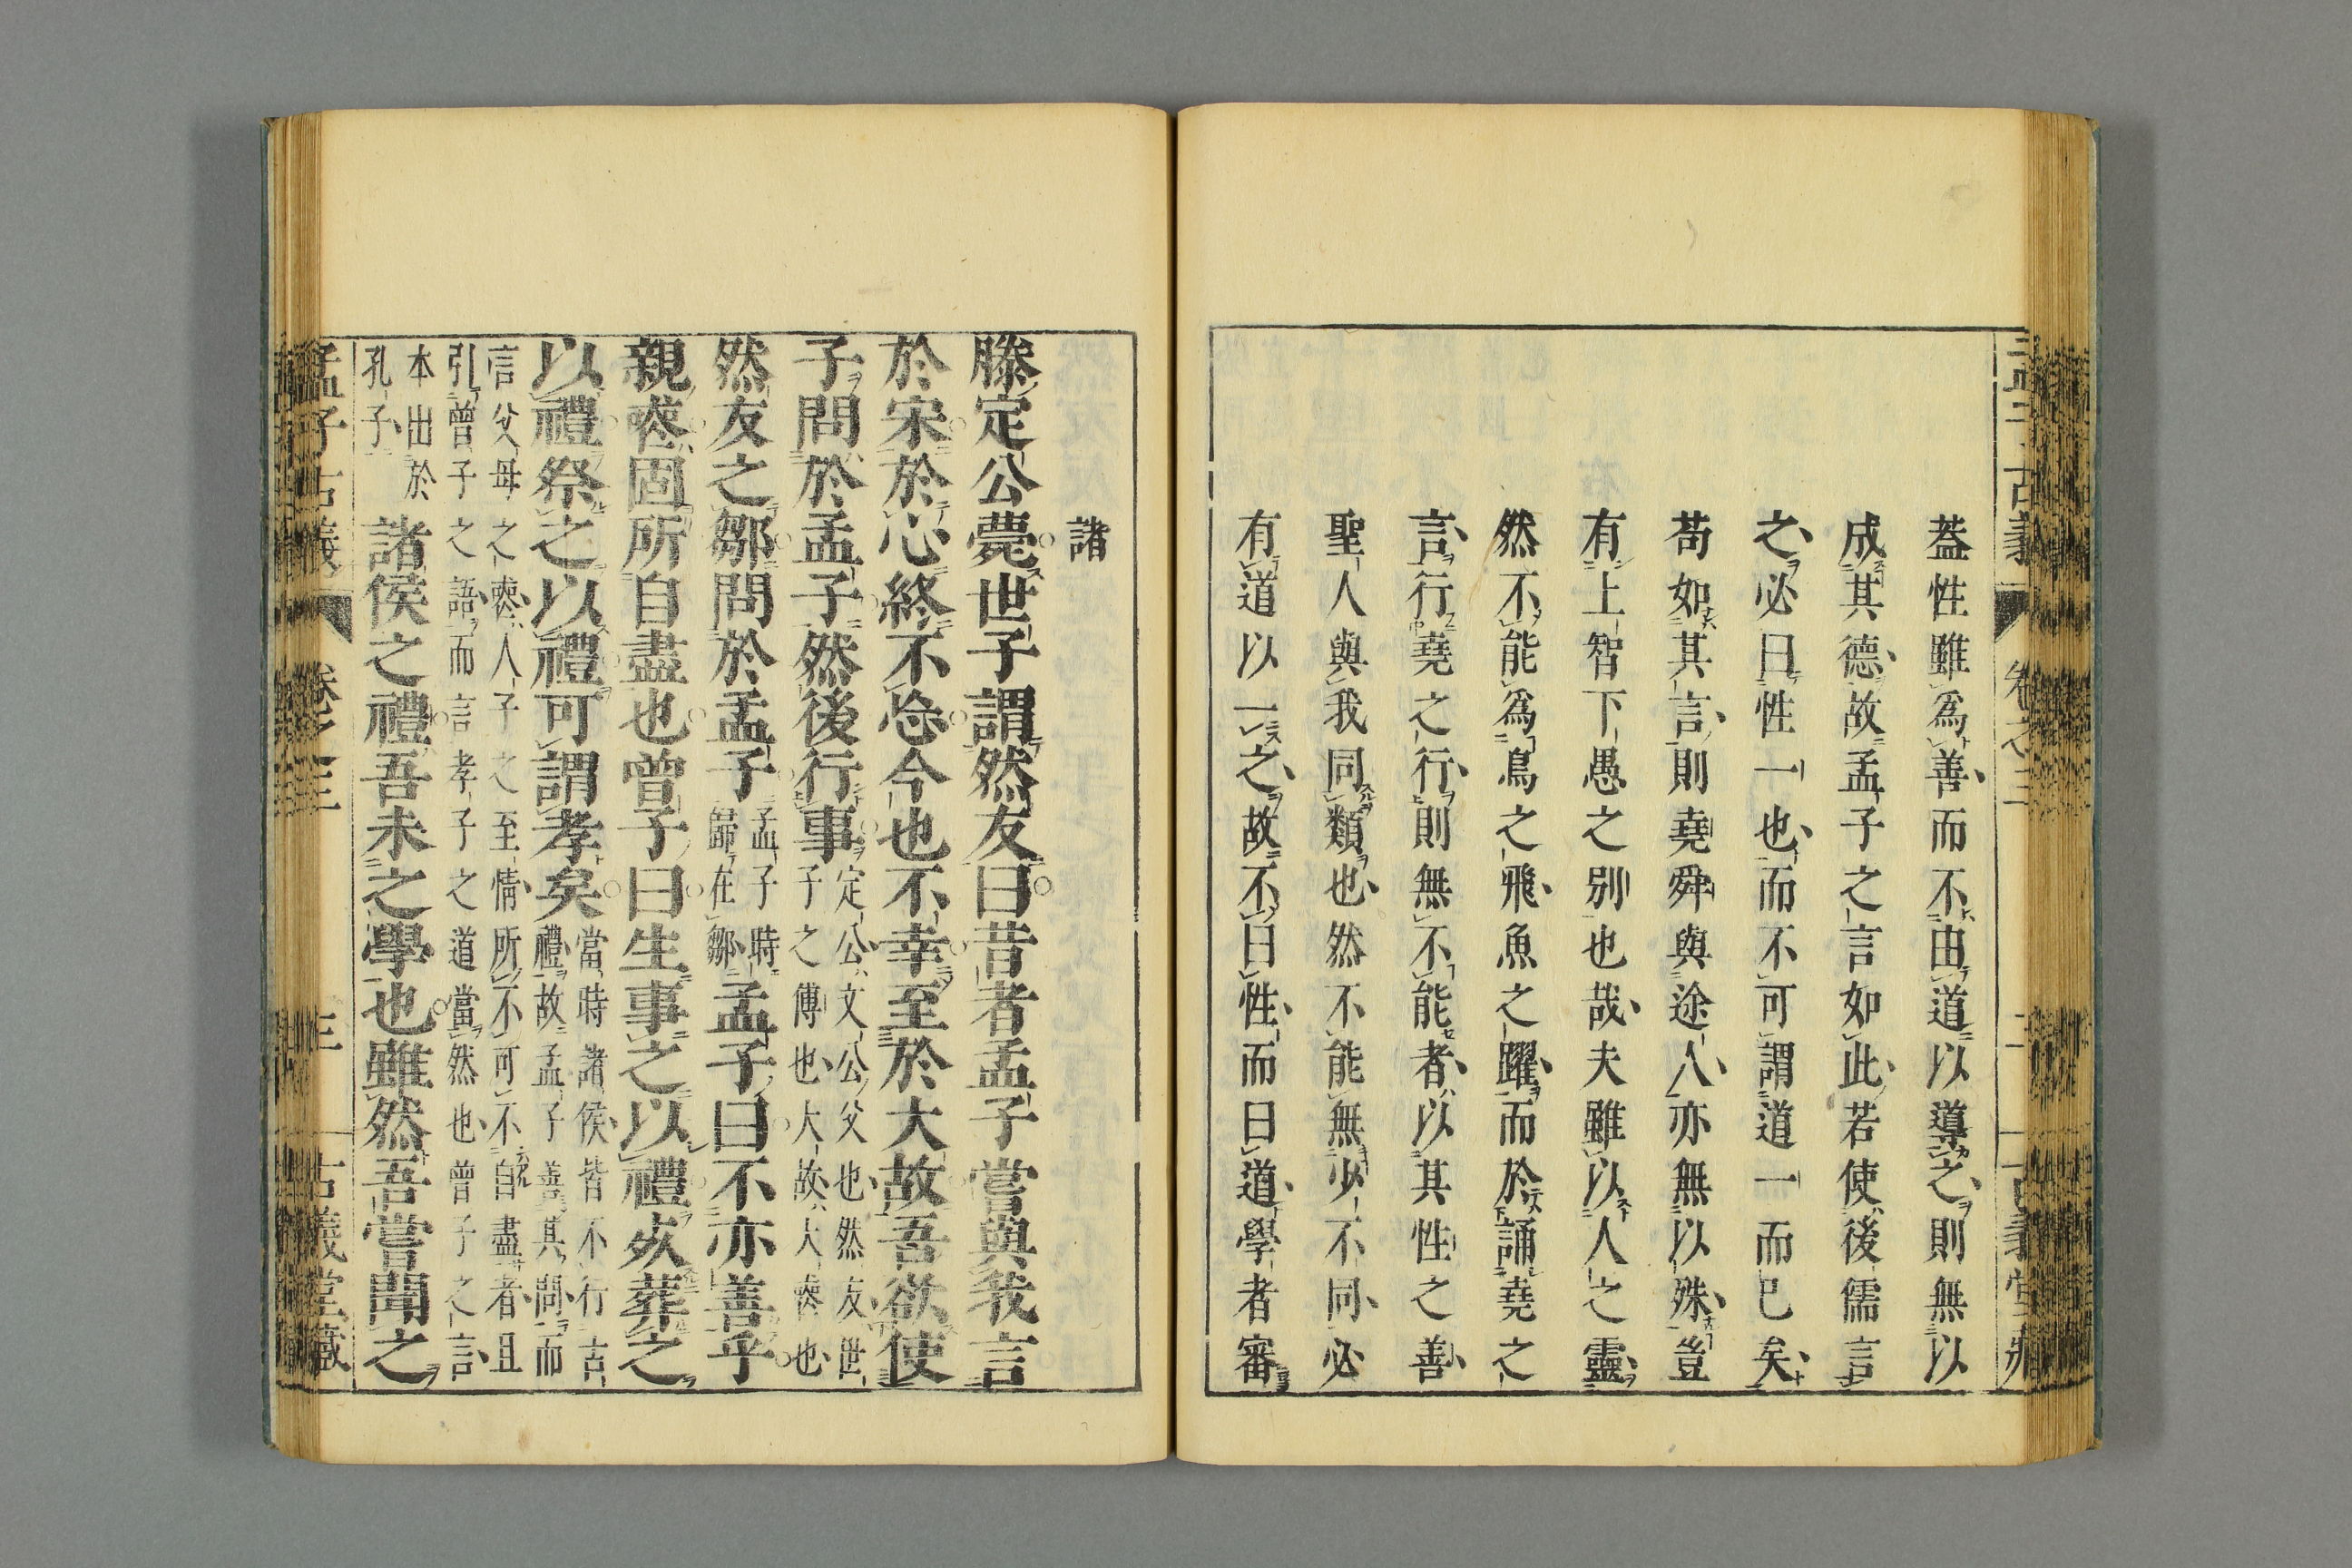 蓋性雖爲善而不由道以導之則無以
成其德故孟子之言如此若使後儒言
之必曰性一也而不可謂道一而已矣
苟如其言則堯舜與途人亦無以殊豈
有上智下愚之別也哉夫雖以人之靈
然不能爲鳥之飛魚之躍而於誦堯之
言行堯之行則無不能者以其性之善
聖人與我同類也然不能無少不同必
有道以一之故不曰性而曰道學者審
諸
滕定公薨世子謂然友曰昔者孟子嘗與我言
於宋於心終不忘今也不幸至於大故吾欲使
子問於孟子然後行事
定公文公父也然友世
子之傅也大故大喪也
然友之鄒問於孟子
孟子時
歸在鄒
孟子曰不亦善乎
親喪固所自盡也曾子曰生事之以禮死葬之
以禮祭之以禮可謂孝矣
當時諸侯皆不行古
禮故孟子善其問而
言父母之喪人子之至情所不可不自盡者且
引曾子之語而言孝子之道當然也曾子之言
本出於
孔子
諸侯之禮吾未之學也雖然吾嘗聞之
孟子古義 卷之三 三 古義堂藏